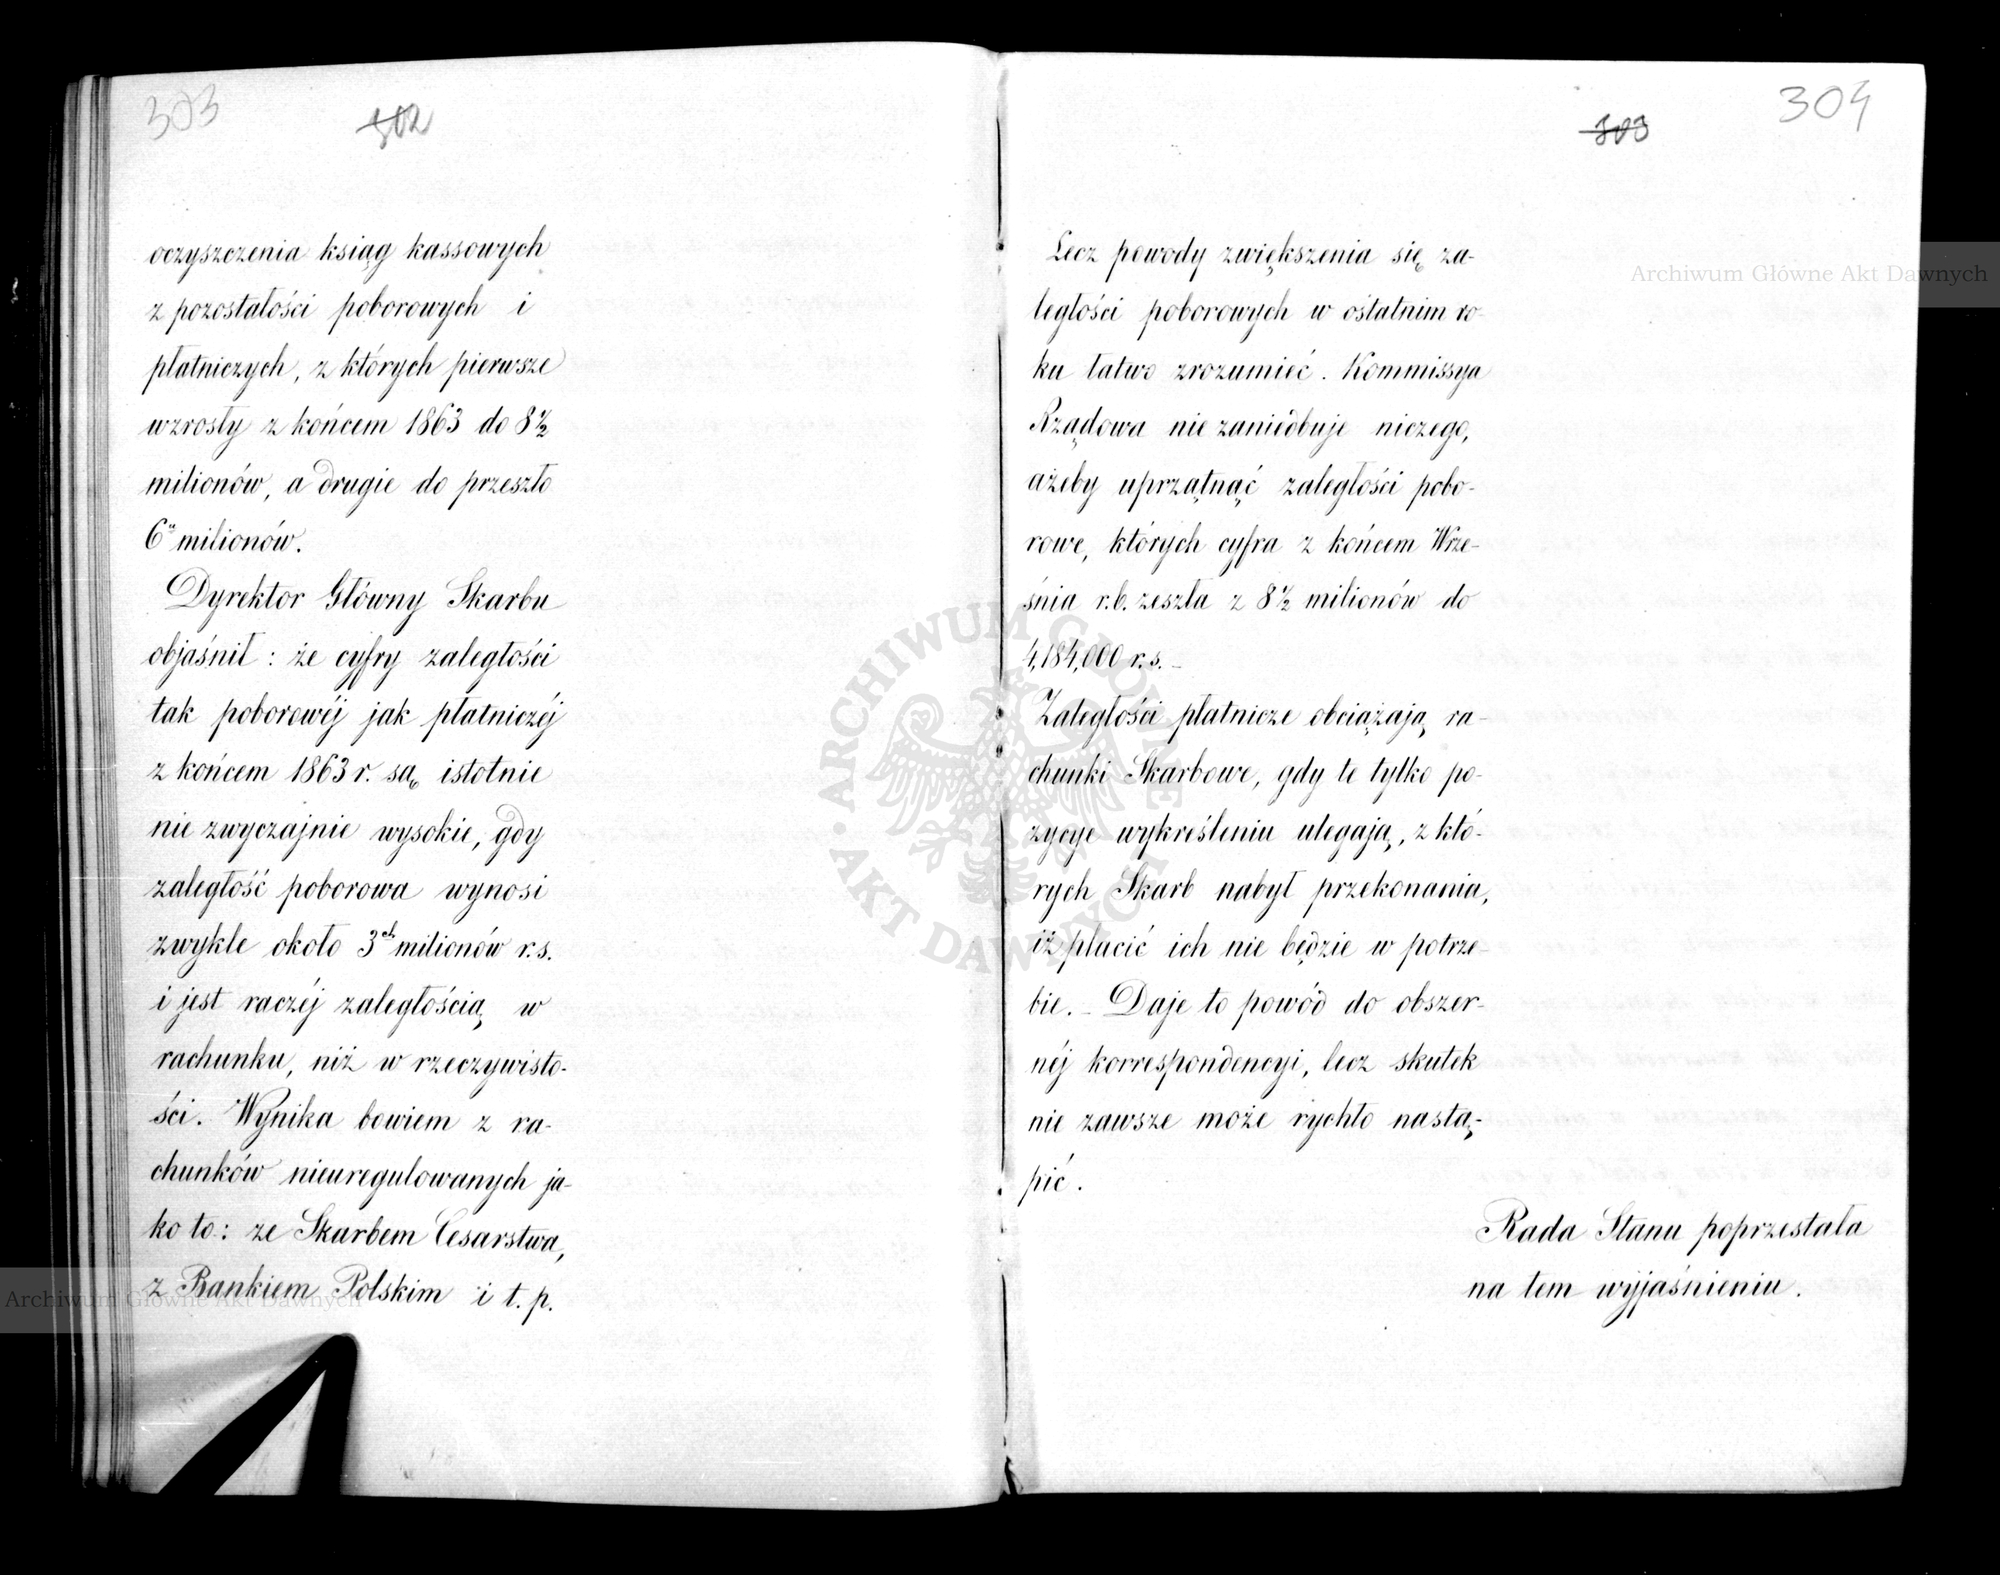 303
302
oczyszczenia ksiąg kassowych
z pozostałości poborowych i
płatniczych, z których pierwsze
wzrosły z końcem 1863 do 8½
milionów, a drugie do przeszło
6u milionów.
Dyrektor Główny Skarbu
objaśnił: że cyfry zaległości
tak poborowéj jak płatniczéj
z końcem 1863 r. są istotnie
nie zwyczajnie wysokie, gdy
zaległość poborowa wynosi
zwykle około 3ch milionów r.s.
i jest raczéj zaległością w
rachunku, niż w rzeczywisto-
ści. Wynika bowiem z ra-
chunków nieuregulowanych ja-
ko to: ze Skarbem Cesarstwa,
z Bankiem Polskim i t. p.
304
303
Lecz powody zwiększenia się za-
ległości poborowych w ostatnim ro-
ku łatwo zrozumieć. Kommissya
Rządowa nie zaniedbuje niczego,
ażeby uprzątnąć zaległości pobo-
rowe, których cyfra z końcem Wrze-
śnia r.b. zeszła z 8½ milionów do
4,184,000 r.s. –
Zaległości płatnicze obciążają ra-
chunki Skarbowe, gdy te tylko po-
zycye wykreśleniu ulegają, z któ-
rych Skarb nabył przekonania,
iż płacić ich nie będzie w potrze-
bie. – Daje to powód do obszer-
néj korrespondencyi, lecz skutek
nie zawsze może rychło nastą-
pić.
Rada Stanu poprzestała
na tem wyjaśnieniu.
Archiwum Główne Akt Dawnych
Archiwum Główne Akt Dawnych
ARCHIWUM GŁÓWNE
AKT DAWNYCH